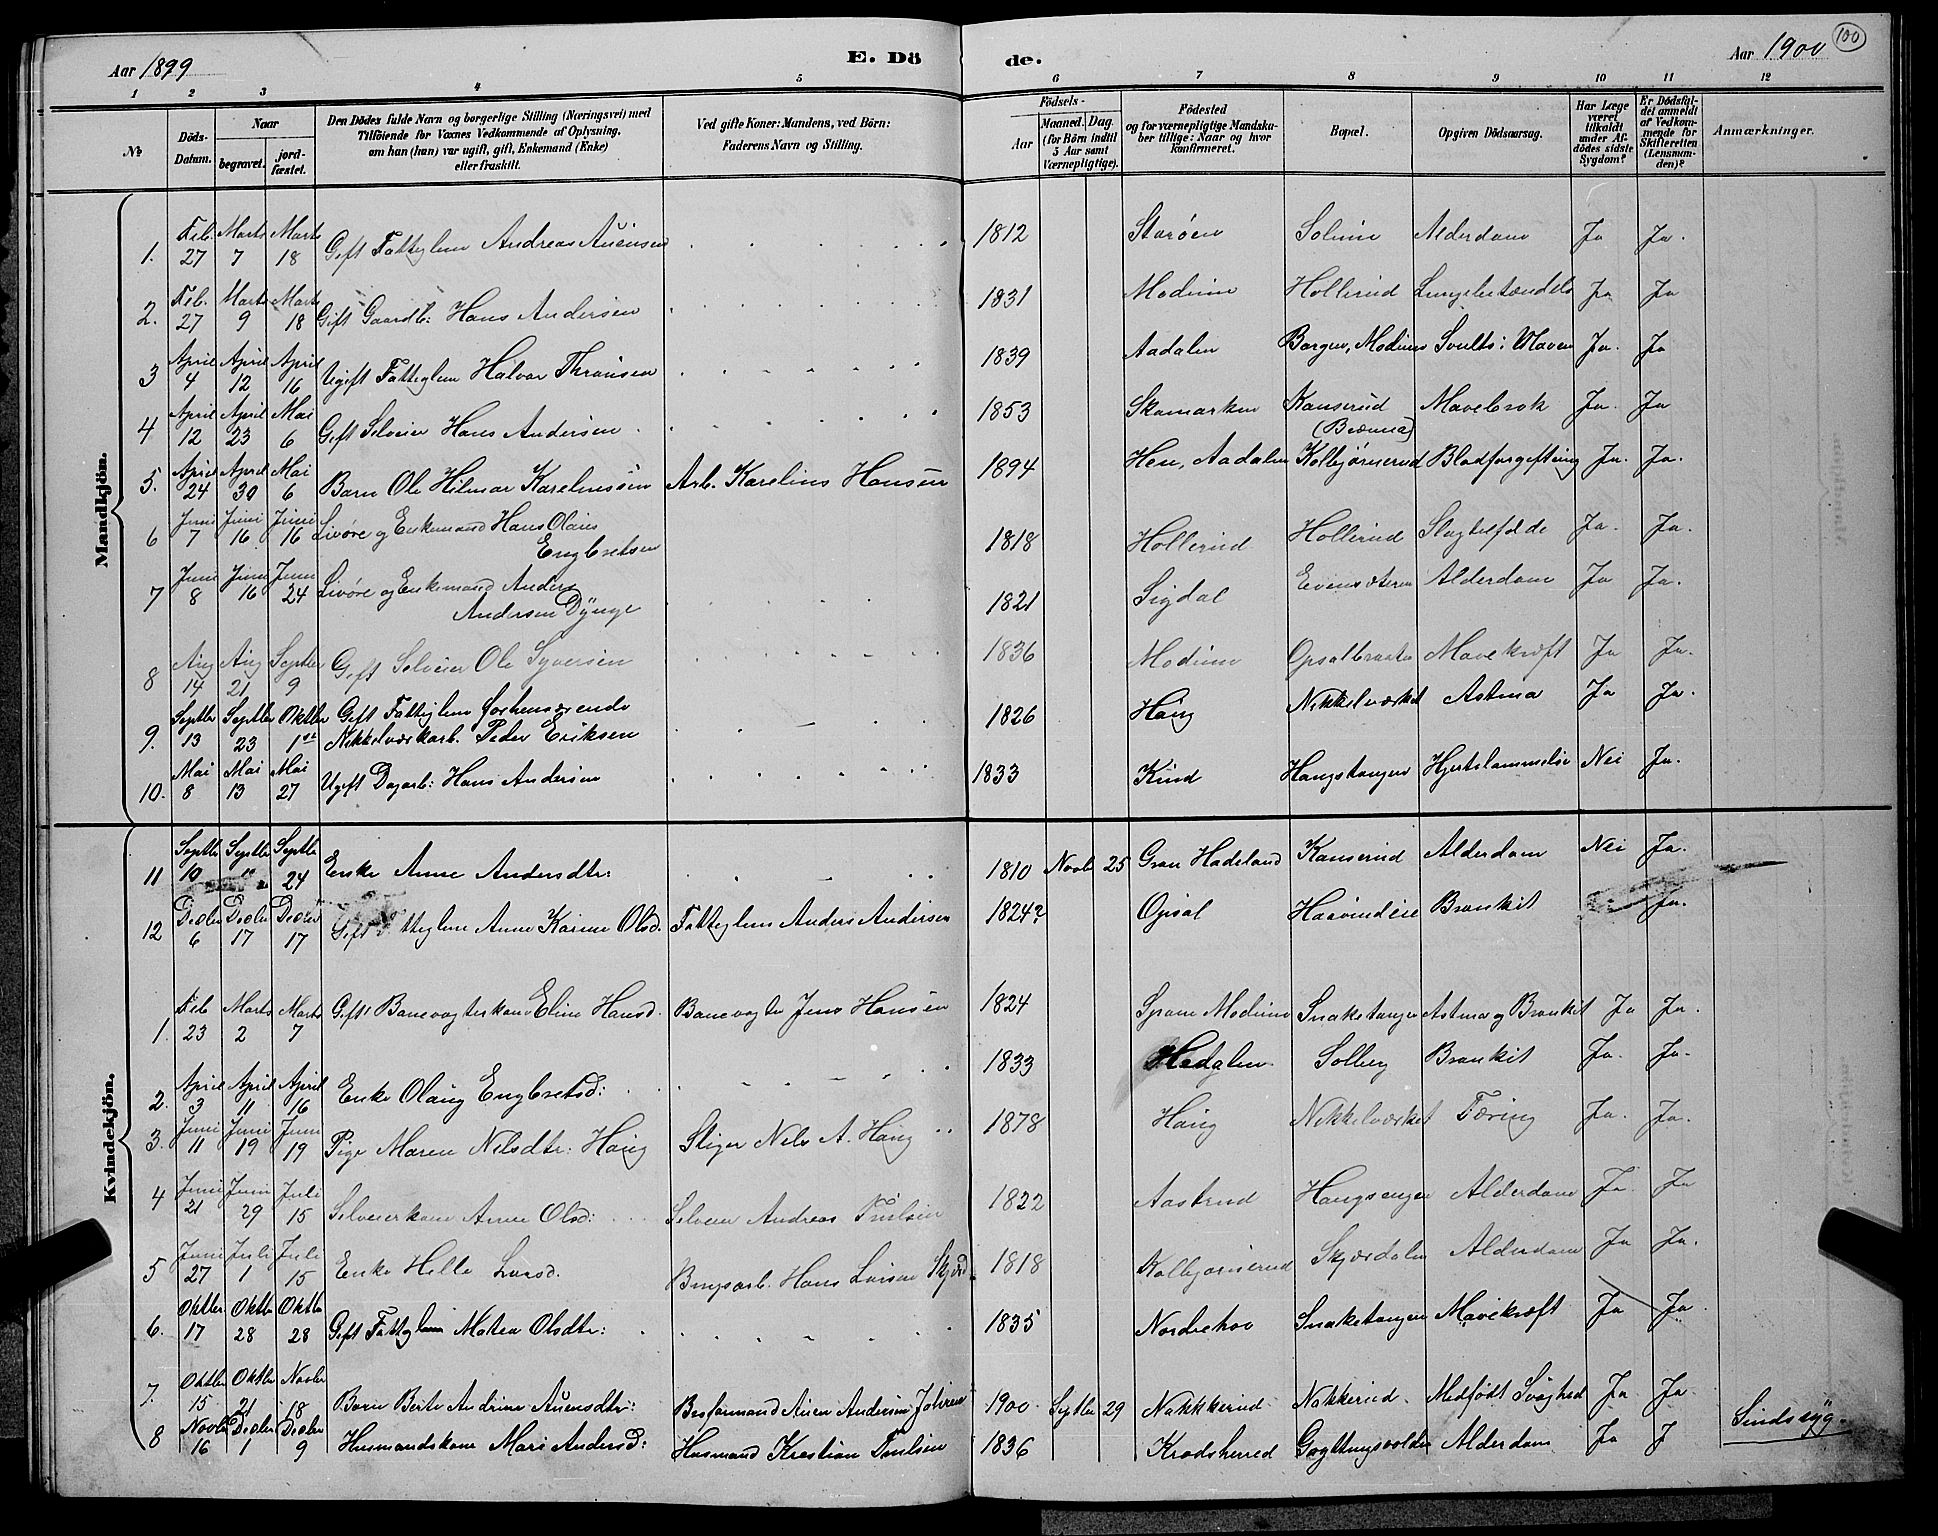 Aar 1899
E. Dö
de.
Aar 1900
100
1 2 3 4 5 6 7 8 9 10 11 12
№
Döds-Datum.
Naar
begravet.
jordfæstet.
Den Dödes fulde Navn og borgerlige Stilling (Næringsvei) med
Tilföiende for Voxnes Vedkommende af Oplysning,
om han (hun) var ugift, gift, Enkemand (Enke)
eller fraskilt.
Ved gifte Koner: Mandens, ved Börn:
Faderens Navn og Stilling.
Födsels-
Aar
Maaned. Dag.
(for Börn indtil
5 Aar samt
Værnepligtige).
Födested
og for værnepligtige Mandskaber tillige: Naar og hvor
konfirmeret.
Bopæl.
Opgiven Dödsaarsag.
Har Læge været tilkaldt under Afdödes sidste Sygdom?
Er Dödsfaldet anmeldt af Vedkommende for Skifteretten (Lensmanden)?
Anmærkninger.
Mandkjön.
1. Feb. 27 Marts 7 Marts 18 Gift Fattiglem Andreas Auensen 1812 Starøen Solum Alderdom Ja Ja.
2. Feb. 27 Marts 9 Marts 18 Gift Gaardb: Hans Andersen 1831 Modum Hollerud Lungebetændels Ja Ja
3 April 4 April 12 April 16 Ugift Fattiglem Halvor Thronsen 1839 Aadalen Borgen, Modum Svulst i Maven Ja. Ja
4 April 12 April 23 Mai 6 Gift Selveier Hans Andersen 1853 Skamarken Kanserud Mavebrok Ja. Ja
5. April 24 April 30 Mai 6 Barn Ole Hilmar Karelinssen Arb. Karelius Hansen 1894 Hen, Aadalen Kolbjørnerud Blodforgiftning Ja. Ja.
6 Juni 7 Juni 16 Juni 16 Livøre og Enkemand Hans Olaus
Engbretsen 1818 Hollerud Hollerud Slagtilfælde Ja. Ja.
7 Juni 8 Juni 16 Juni 24 Livøre og Enkemand Anders
Andersen Dynge 1821 Sigdal Evensæteren Alderdom Ja Ja.
8 Aug 14 Aug 21 Septbr 9 Gift Selveier Ole Syversen 1836 Modum Opsalbraaten Mavekræft Ja Ja.
9. Septbr 13 Septbr 23 Oktbr 1ste Gift Fattiglem forhenværende
Nikkelværksarb. Peder Eriksen 1826 Haug Nikkelværket Astma Ja Ja.
10. Mai 8 Mai 13 Mai 27 Ugift Dagarb: Hans Andersen 1833 Kind Haugstangen Hjertelammelse Nei Ja.
11 Septbr 10 Septbr " Septbr 24 Enke Anne Andersdtr: 1810 Novbr 25 Gran Hadeland Kanserud Alderdom Nei Ja.
12 Decbr 6 Decbr 17 Decbr 17 Gift Fattiglem Anne Karine Olsd. Fattiglem Anders Andersen 1824? Opsal Bronkit Ja.
Kvindekjön.
1. Feb 23 Marts 2 Marts 7 Gift Banevogterkone Eline Hansd. Banevogter Jens Hansen 1824 Modum Snaketangen Astma og Bronkit Ja Ja.
2. April 3 April 11 April 16 Enke Olaug Engbretsd: 1833 Hedalen Solberg Bronkit Ja. Ja.
3. Juni 11 Juni 19 Juni 19 Pige Maren Nilsdtr: Haug Stiger Nels A. Haug 1878 Haug Nikkelværket Tæring Ja. Ja.
4 Juni 21 Juni 29 Juli 15 Selveierkone Anne Olsd: Selveier Andreas Poulsen 1822 Aastrud Alderdom Ja. Ja
5 Juni 27 Juli 1 Juli 15 Enke Helle Larsd. Brugsarb. Hans Larsen 1818 Kolbjørnerud Skjærdalen Alderdom Ja Ja.
6. Oktbr 17 Oktbr 28 Oktbr 28 Gift Fattiglem Matea Olsdtr: 1835 Norderhov Snaketangen Mavekræft Ja Ja
7. Oktbr 15 Oktbr 21 Novbr 18 Barn Berte Andrine Auensdtr: Auen Andersen 1900 Septbr 29 Nakkerud Nakkerud. Medfødt Svaghed Ja Ja
8 Novbr 16 Decbr 1 Decbr 9 Husmandskone Mari Andersd: Husmand Kristian Poulsen 1836 Krødsherred Alderdom Ja J Sindssyg.